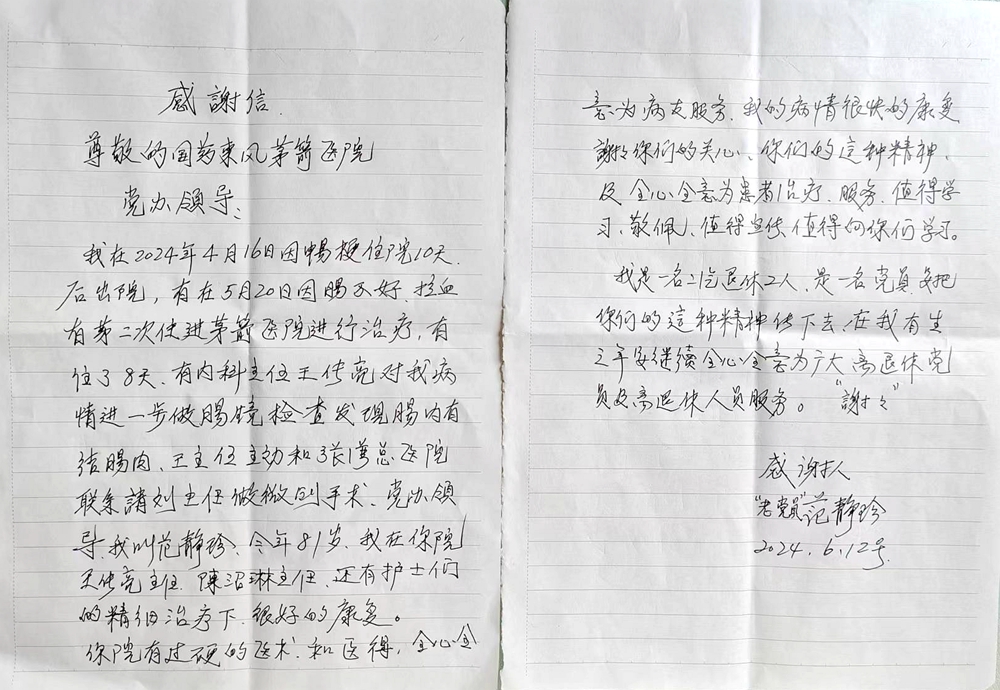 感謝信
尊敬的国药東风茅箭医院
党办領导:
我在2024年4月16日因腸梗住院10天.
后出院，有在5月20日因腸不好.拉血
有第二次住进茅箭医院进行治疗,有
住了8天.有内科主任王传亮对我病
情进一步做腸镜检查发现腸内有
结腸肉.王主任主动和张湾总医院
联系請刘主任做微创手术.党办領
导.我叫范静珍.今年81岁.我在你院
王传亮主任.陳沼琳主任.还有护士们
的精细治疗下.很好的康复。
你院有过硬的医术.和医得,全心全
意为病友服务.我的病情很快的康复
謝々你们的关心、你们的这种精神、
及全心全意为患者治疗.服务.值得学
习、敬佩、值得宣传.值得向你们学习。
我是一名二汽退休工人.是一名党員.要把
你们的這种精神传下去.在我有生
之年要继续全心全意为广大离退休党
员及离退休人员服务。"謝々"
感谢人
"老党員"范静珍
2024.6.12号